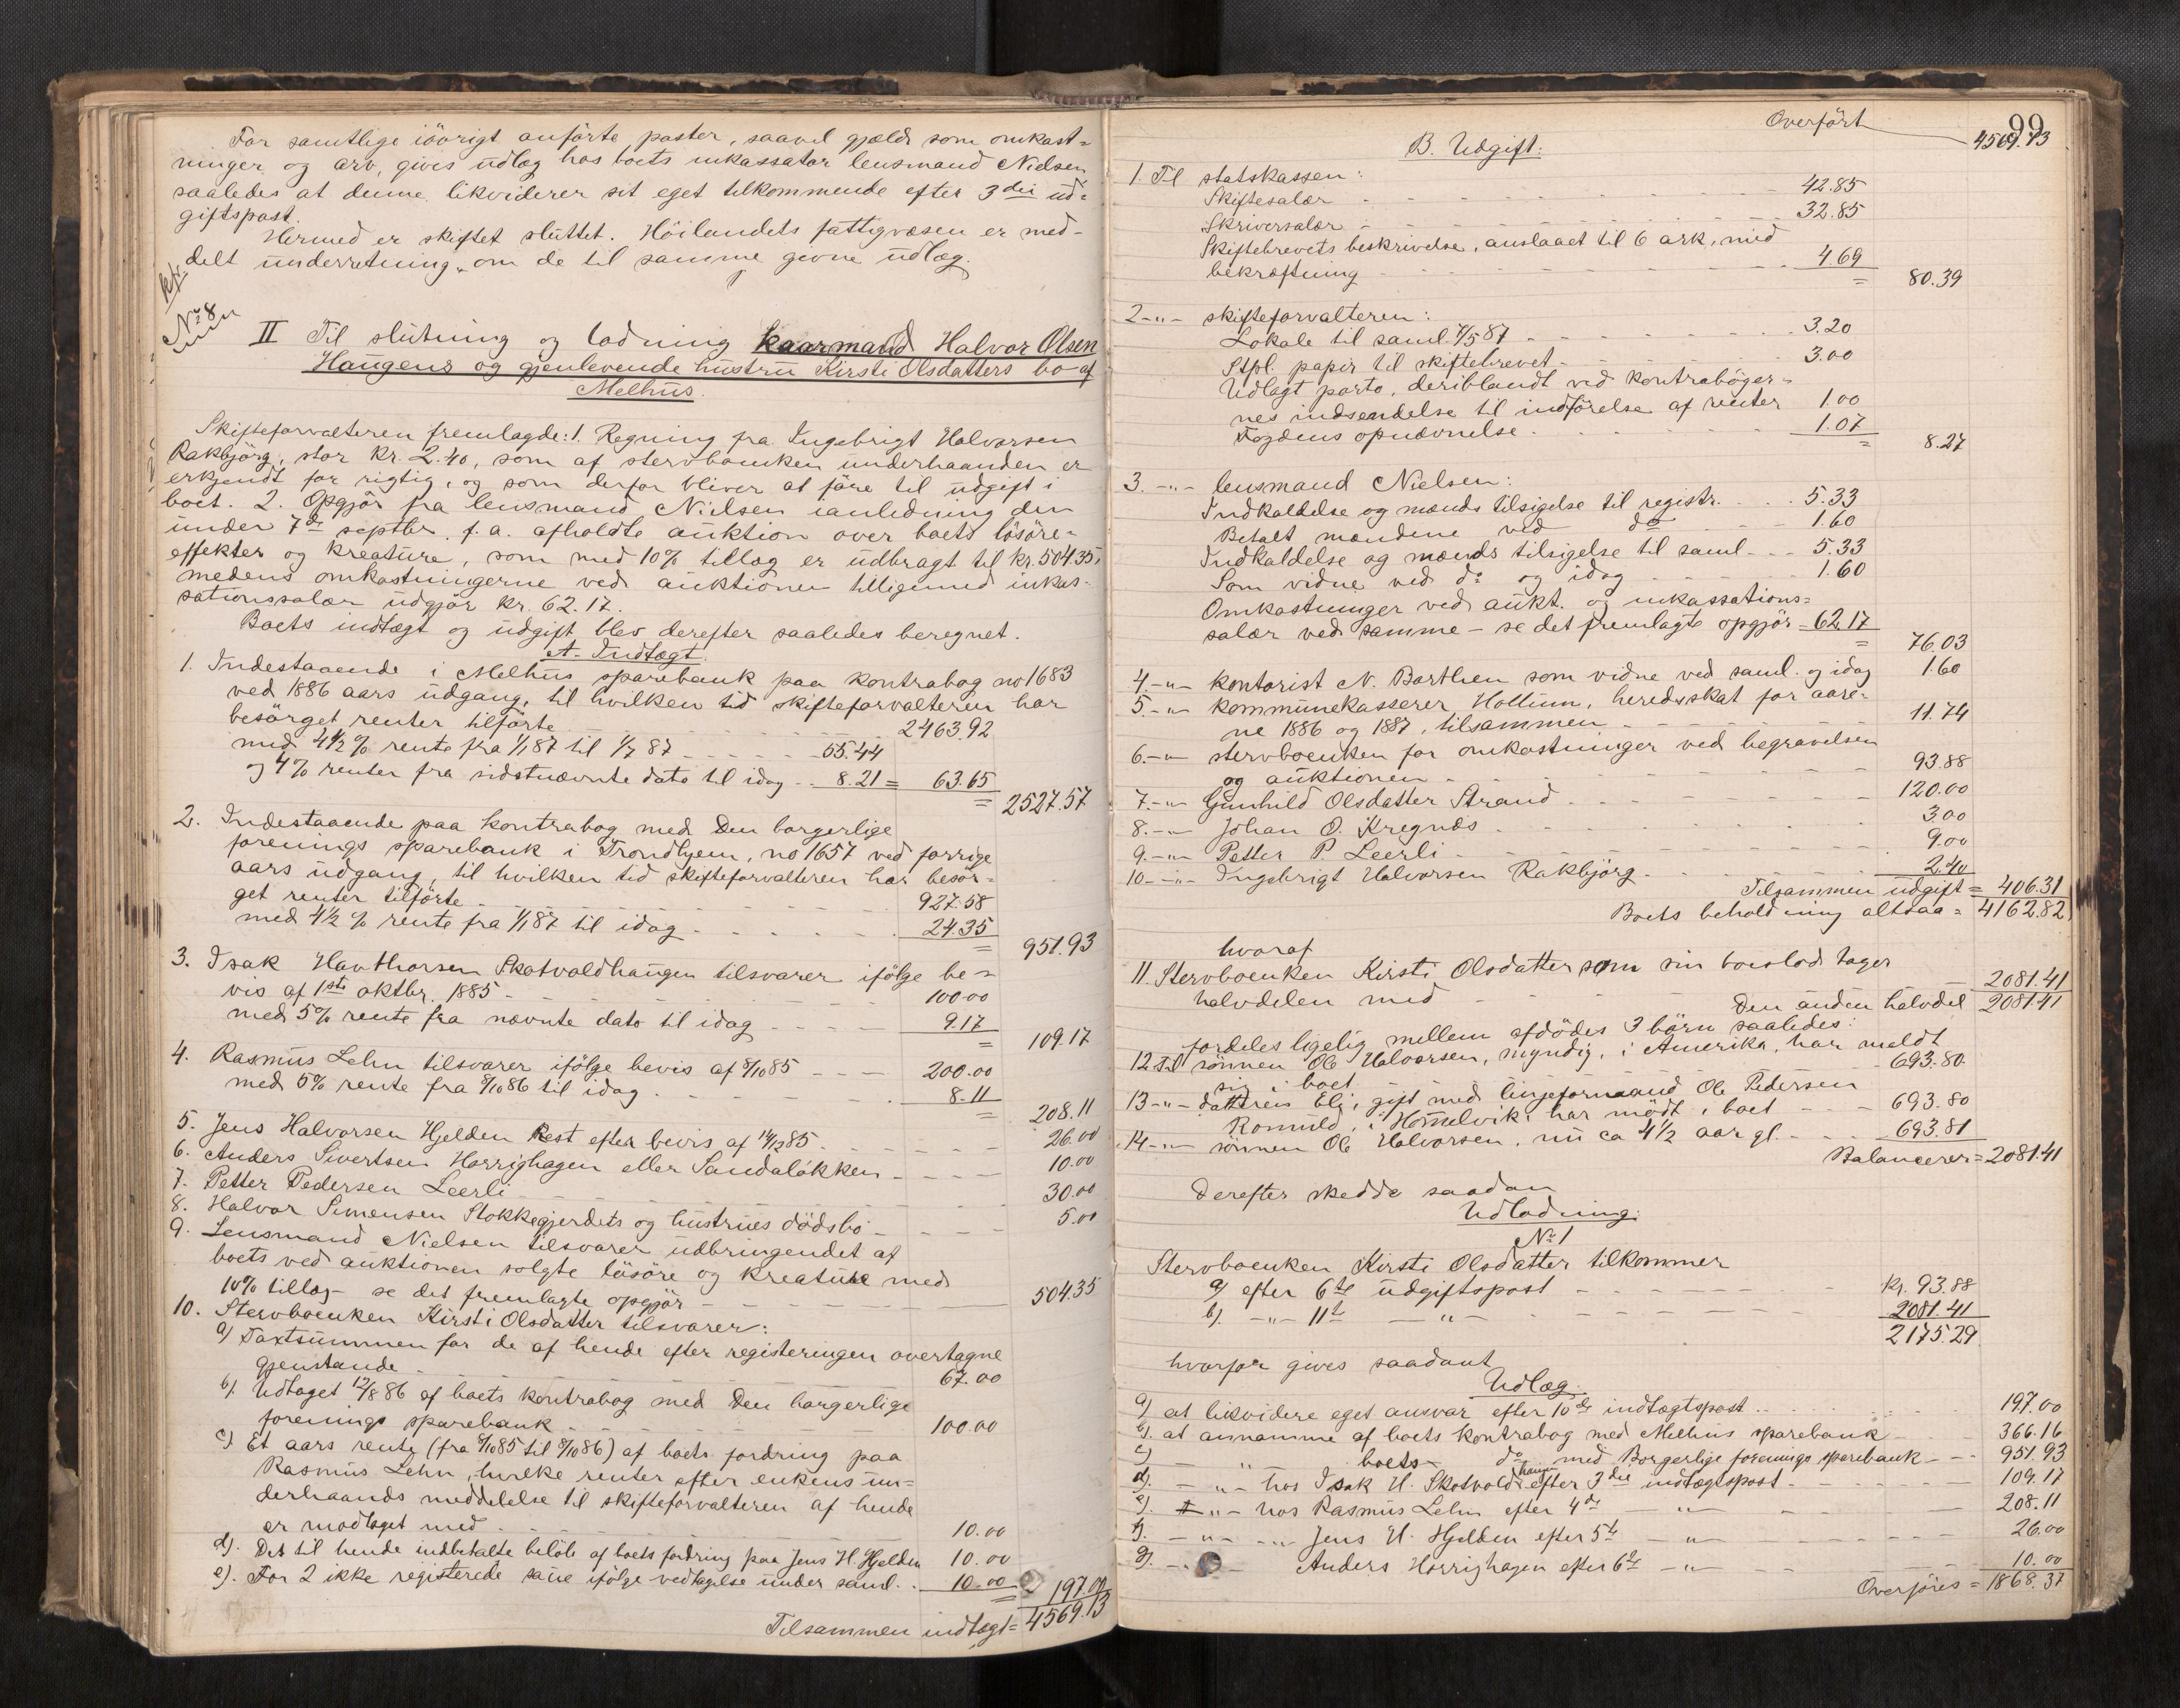 For samtlige iövrigt anförte poster, saavel gjeld som omkost=
ninger og arv, gives udlæg hos boets inkassator lensmand Nielsen
saaledes at denne likviderer sit eget tilkommende efter 3die ud=
giftspost.
Hermed er skiftet sluttet. Höilandets fattigvæsen er med-
delt underretning om de til samme givne udlæg.
No 8
II Til slutning og lodning kaarmand Halvor Olsen
Haugens og gjenlevende hustru Kirsti Olsdatters bo af
Melhus.
Skifteforvalteren fremlagde: 1. Regning fra Ingebrigt Halvorsen
Rakbjörg, stor Kr. 2.40, som af stervboenken underhaanden er
erkjendt for rigtig, og som derfor bliver at före til udgift i
boet. 2. Opgjör fra lensmand Nielsen ianledning den
under 7de septbr. f.a. afholdte auktion over boets lösöre-
effekter og kreature, som med 10% tillæg er udbragt til kr. 504.35,
medens omkostningerne ved auktionen tilligemed inkas-
sationssalær udgjör kr. 62.17.
Boets indtægt og udgift blev derefter saaledes beregnet.
A. Indtægt.
1. Indestaaende i Melhus sparebank paa kontrabog no 1683
ved 1886 aars udgang, til hvilken tid skifteforvalteren har
besörget renter tilförte 2463.92
med 4½ % rente fra 1/1 87 til 1/7 87 55.44
og 4% renter fra sidstnævnte dato til idag 8.21 = 63.65
= 2527.57
2. Indestaaende paa kontrabog med Den borgerlige
forenings sparebank i Trondhjem, no 1657 ved forrige
aars udgang, til hvilken tid skifteforvalteren har besör=
get renter tilförte 927.58
med 4½ % rente fra 1/1 87 til idag 24.35
= 951.93
3. Isak Havthorsen Skotvoldhaugen tilsvarer ifölge be-
vis af 1ste oktbr. 1885 100.00
med 5% rente fra nævnte dato til idag 9.17
= 109.17
4. Rasmus Lehn tilsvarer ifölge bevis af 8/10 85 200.00
med 5% rente fra 8/10 86 til idag 8.11
= 208.11
5. Jens Halvorsen Hjelden Rest efter bevis af 14/12 85 26.00
6. Anders Sivertsen Horrighagen eller Sandaløkken 10.00
7. Petter Pedersen Leerli 30.00
8. Halvor Simensen Stokkegjerdets og hustrues dödsbo 5.00
9. Lensmand Nielsen tilsvarer udbringendet af
boets ved auktionen solgte lösöre og kreature med
10% tillæg - se det fremlagte opgjör 504.35
10. Stervboenken Kirsti Olsdatter tilsvarer:
a) Taxtsummen for de af hende efter registeringen overtagne
gjenstande 67.00
b). Udtaget 12/8 86 af boets kontrabog med Den borgerlige
forenings sparebank 100.00
c) Et aars rente (fra 8/10 85 til 8/10 86) af boets fordring paa
Rasmus Lehn, hvilke renter efter enkens un=
derhaands meddelelse til skifteforvalteren af hende
er modtaget med 10.00
d). Det til hende indbetalte beløb af boets fordring paa Jens H. Hjelden 10.00
e). For 2 ikke registerede saue ifölge vedtagelse under saml. 10.00
= 197.00
Tilsammen indtægt = 4569.13
99
Overfört 4569.13
B. Udgift:
1. Til statskassen:
Skiftesalær 42.85
Skriversalær 32.85
Skiftebrevets beskrivelse, anslaaet til 6 ark, med
bekræftning 4.69
= 80.39
2 -"- skifteforvalteren:
Lokale til saml. 7/5 87 3.20
Stpl. papir til skiftebrevet 3.00
Udlagt porto, deriblandt ved kontraböger=
nes indsendelse til indförelse af renter 1.00
Fogdens opnævnelse 1.07
= 8.27
3. -"- lensmand Nielsen:
Indkaldelse og mænds tilsigelse til registr. 5.33
Betalt mændene ved do 1.60
Indkaldelse og mænds tilsigelse til saml 5.33
Som vidne ved do og idag 1.60
Omkostninger ved aukt. og inkassations=
salær ved samme - se det fremlagte opgjör = 62.17
= 76.03
4. -"- kontorist N. Barthen som vidne ved saml. og idag 1.60
5. -"- kommunekasserer Hollum, heredsskat for aare=
ne 1886 og 1887, tilsammen 11.74
6. -"- stervboenken for omkostninger ved begravelsen
og auktionen 93.88
7. -"- Gunhild Olsdatter Strand 120.00
8. -"- Johan O. Kregnæs 3.00
9. -"- Petter P. Leerli 9.00
10. -"- Ingebrigt Halvorsen Rakbjörg 2.40
Tilsammen udgift = 406.31
Boets beholdning altsaa = 4162.82
hvoraf
11. Stervboenken Kirsti Olsdatter som sin boeslod tager
halvdelen med 2081.41
Den anden halvdel 2081.41
fordeles ligelig mellem afdödes 3 börn saaledes:
12 Til sönnen Ole Halvorsen, myndig, i Amerika, har meldt
sig i boet 693.80
13 -"- datteren Eli, gift med linjeformand Ole Pedersen
Romuld, i Hommelvik har mödt i boet 693.80
14 -"- sönnen Ole Halvorsen, nu ca 4½ aar gl. 693.81
Balancerer = 2081.41
Derefter skedde saadan
Udlodning:
No 1
Stervboenken Kirsti Olsdatter tilkommer
a) efter 6te udgiftspost Kr. 93.88
b). -"- 11te -"- 2081.41
2175.29
hvorfor gives saadant
Udlæg:
a) at likvidere eget ansvar efter 10de indtægtspost 197.00
b). at annamme af boets kontrabog med Melhus sparebank 366.16
c) -"- boets do med Borgerlige forenings sparebank 951.93
d). -"- hos Isak H. Skotvoldhaugen efter 3die indtægtspost 109.17
e). -"- hos Rasmus Lehn efter 4de -"- 208.11
f). -"- -"- Jens H. Hjelden efter 5te -"- 26.00
g). -"- Anders Horrighagen efter 6te -"- 10.00
Overföres = 1868.37